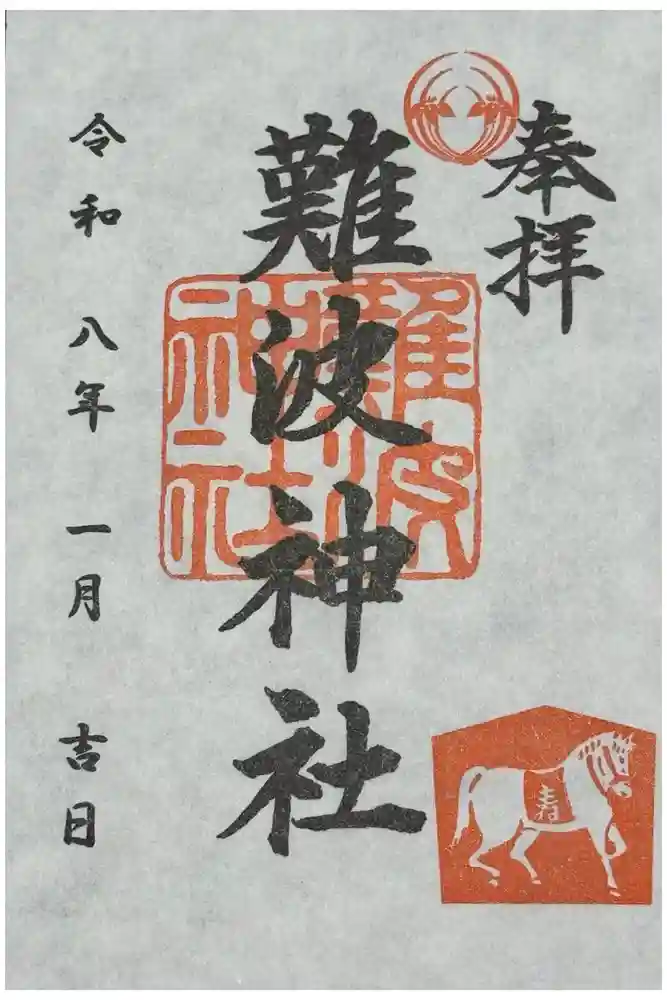 奉拝
難波神社
難波神社
令和八年一月吉日
寿